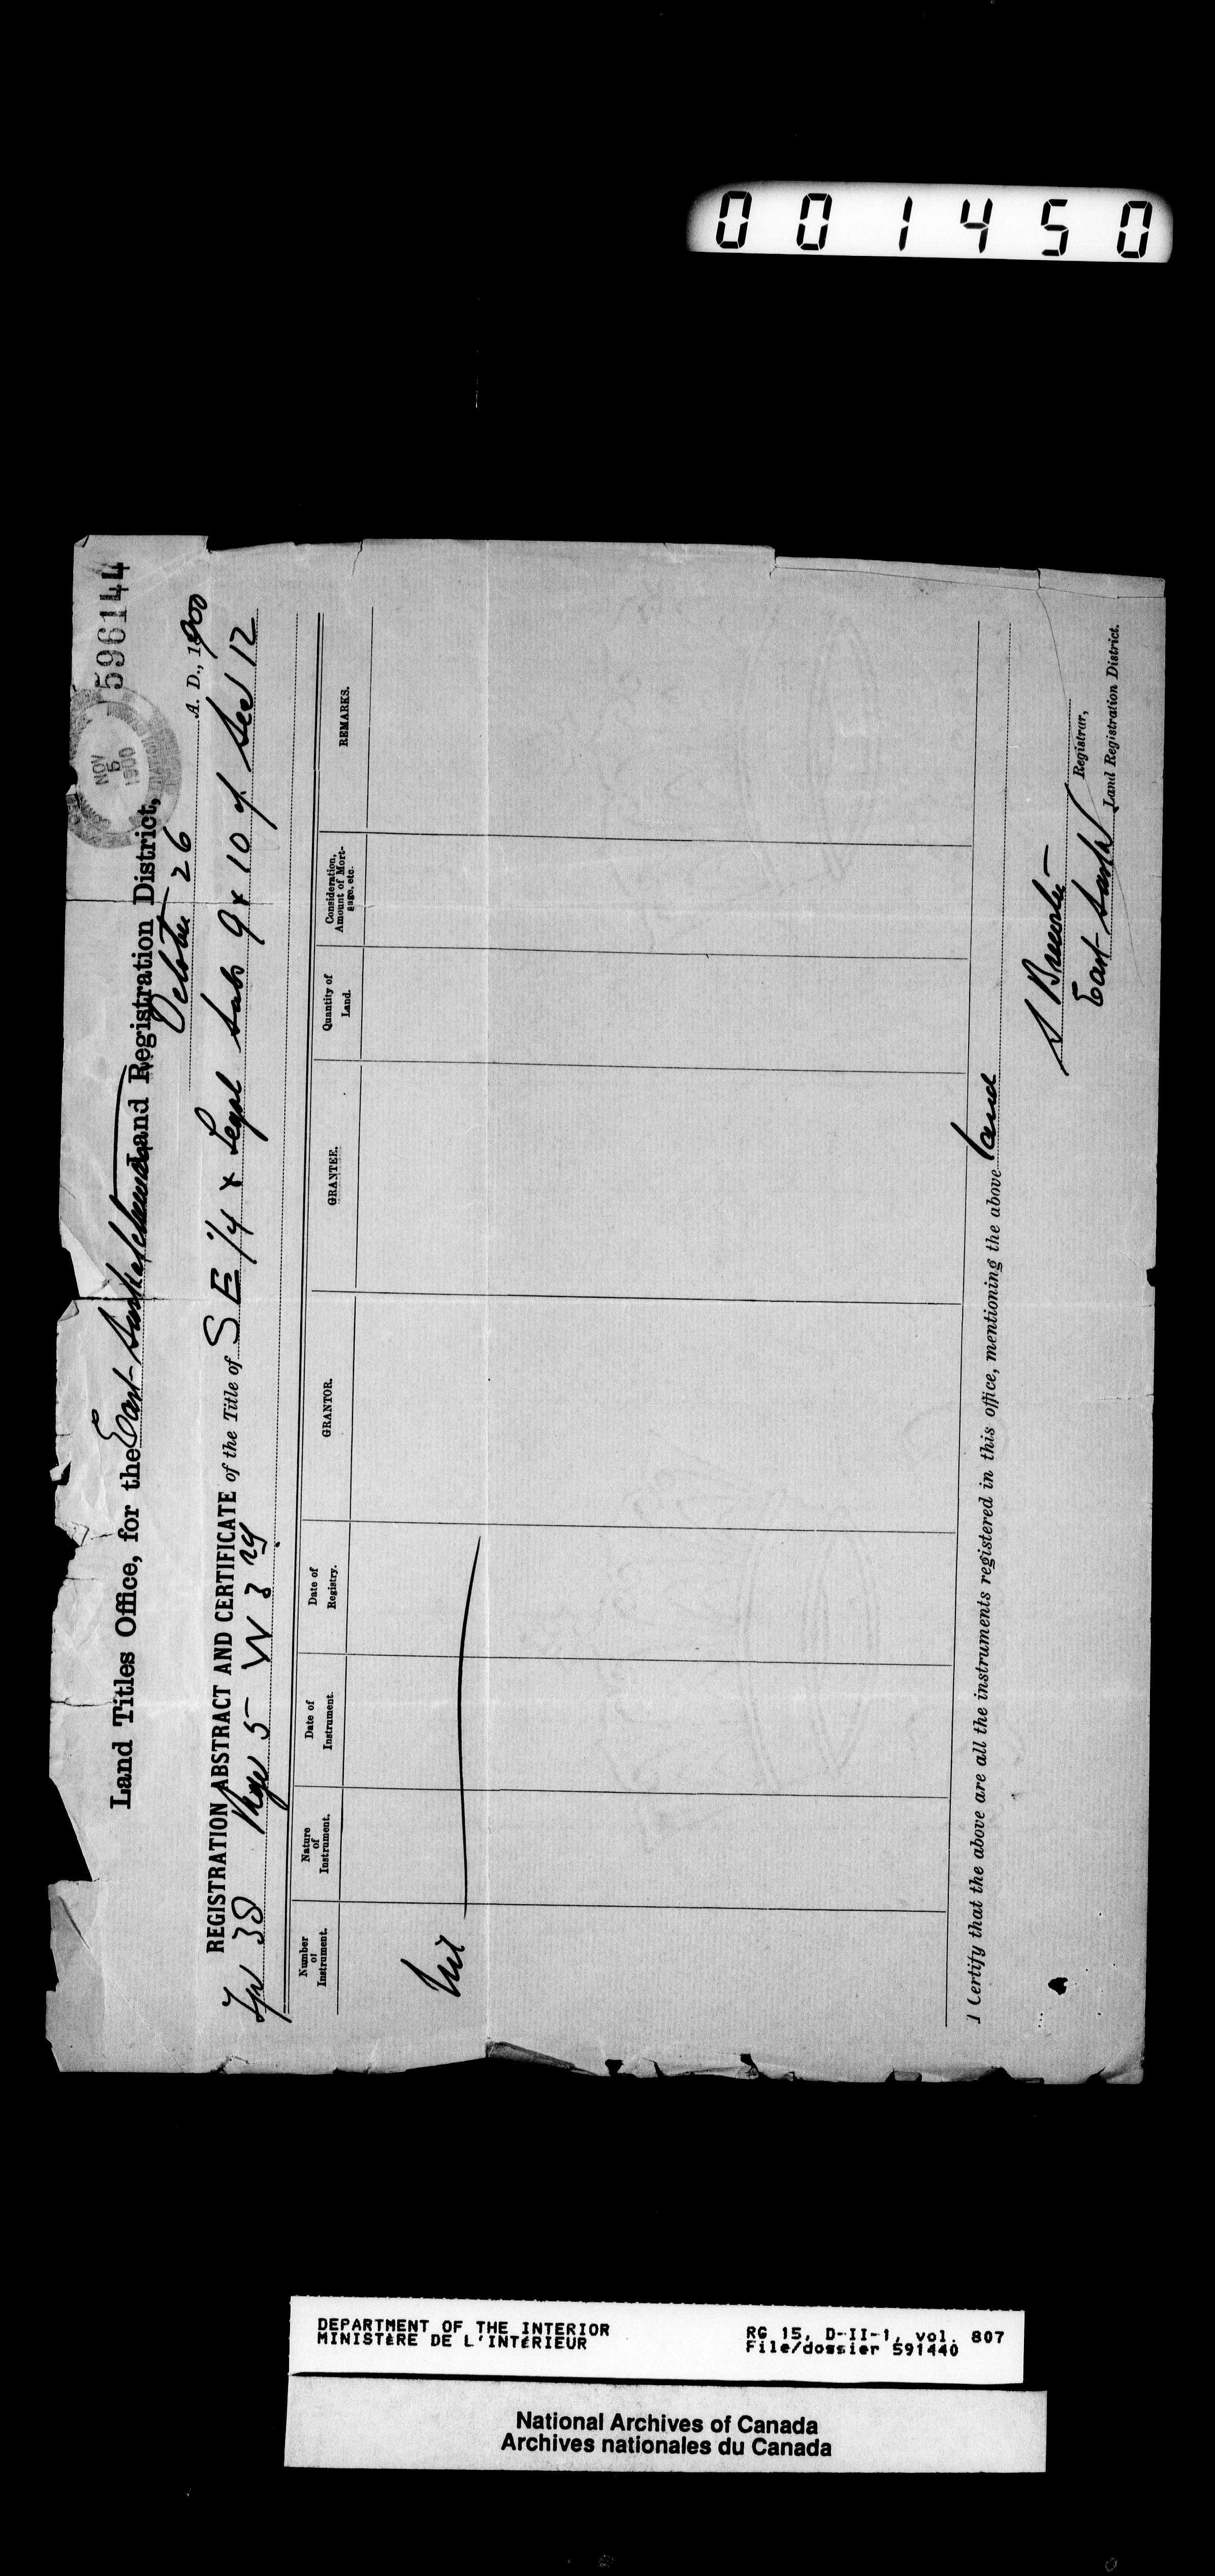 001450
596144
NOV
5
1900
Land Titles Office, for the East Saskatchewan Land Registration District,
October 26 A. D., 1900
REGISTRATION ABSTRACT AND CERTIFICATE of the Title of S E 1/4 & Legal Subs 9 & 10 of Sec 12
Tp 38 Rge 5 W 3rd
Number of Instrument.
Nature of Instrument.
Date of Instrument.
Date of Registry.
GRANTOR.
GRANTEE.
Quantity of Land.
Consideration, Amount of Mortgage, etc.
REMARKS.
Nil
I Certify that the above are all the instruments registered in this office, mentioning the above land
S Brewster
Registrar,
East Sask
Land Registration District.
DEPARTMENT OF THE INTERIOR
MINISTÈRE DE L'INTÉRIEUR
RG 15, D-II-1, vol. 807
File/dossier 591440
National Archives of Canada
Archives nationales du Canada